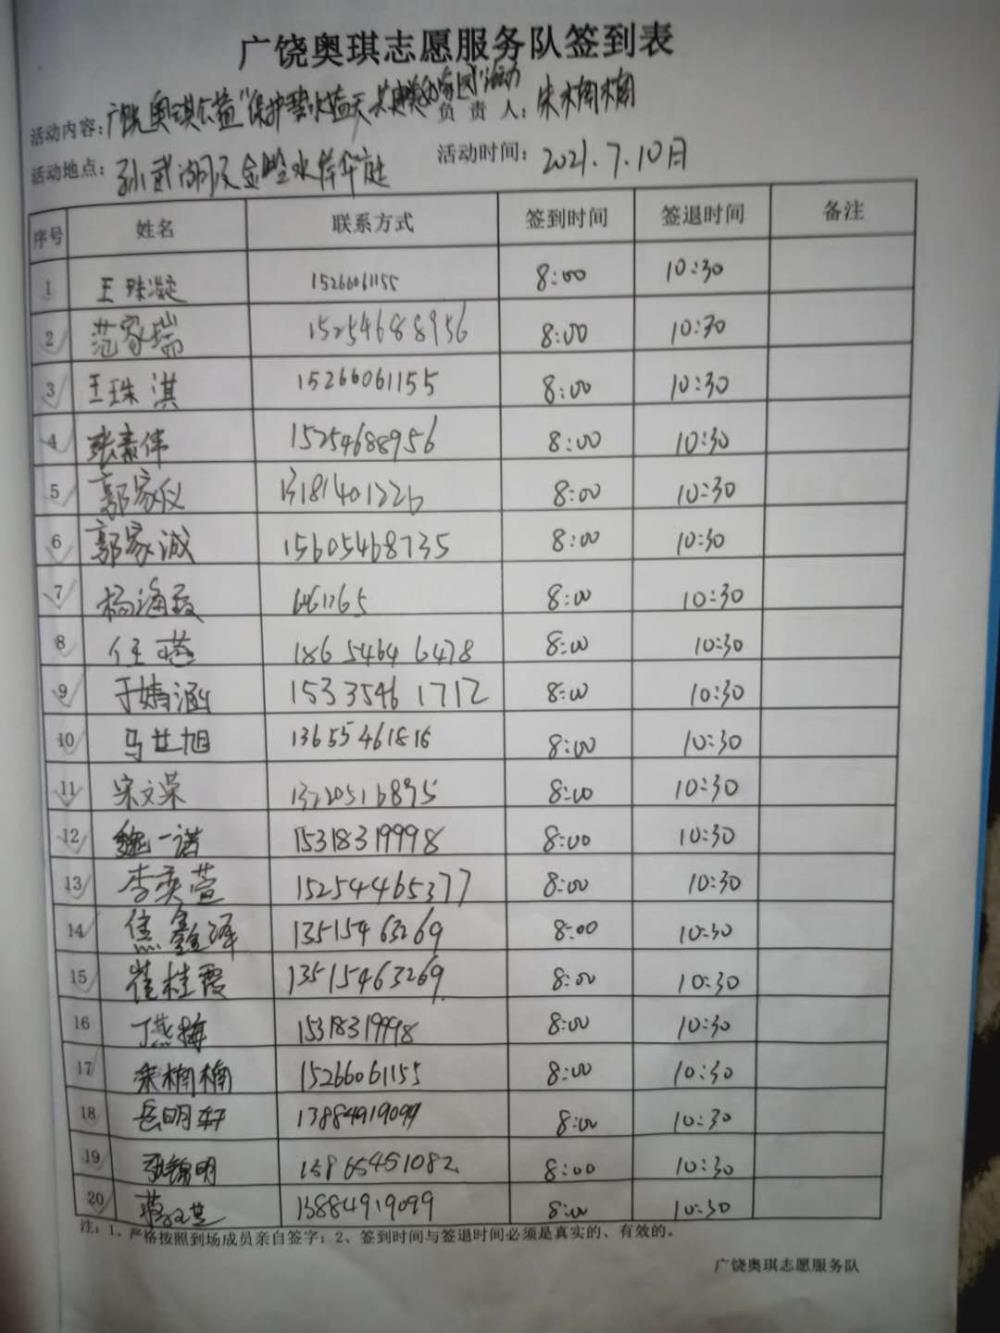 广饶奥琪志愿服务队签到表
活动内容：广饶奥琪公益"保护碧水蓝天 共建美好家园"活动 负责人：朱楠楠
活动地点：孙武湖及金 水岸华庭 活动时间：2021.7.10日
序号 姓名 联系方式 签到时间 签退时间 备注
1 王珠凝 15266061155 8:00 10:30
2 范家瑞 15254688956 8:00 10:30
3 王珠淇 15266061155 8:00 10:30
4 张素伟 15254688956 8:00 10:30
5 郭家仪 13181401226 8:00 10:30
6 郭家诚 15605468735 8:00 10:30
7 杨海霞 661765 8:00 10:30
8 任 燕 18654646478 8:00 10:30
9 于婧涵 15335461712 8:00 10:30
10 马世旭 13655461816 8:00 10:30
11 宋文荣 8:00 10:30
12 魏一诺 15318319998 8:00 10:30
13 李奕萱 15254465377 8:00 10:30
14 焦鑫泽 13515463269 8:00 10:30
15 崔桂霞 13515463269 8:00 10:30
16 丁燕梅 15318319998 8:00 10:30
17 朱楠楠 15266061155 8:00 10:30
18 岳明轩 13884919099 8:00 10:30
19 张锦明 13865451082 8:00 10:30
20 13884919099 8:00 10:30
注：1、严格按照到场成员亲自签字；2、签到时间与签退时间必须是真实的、有效的。
广饶奥琪志愿服务队